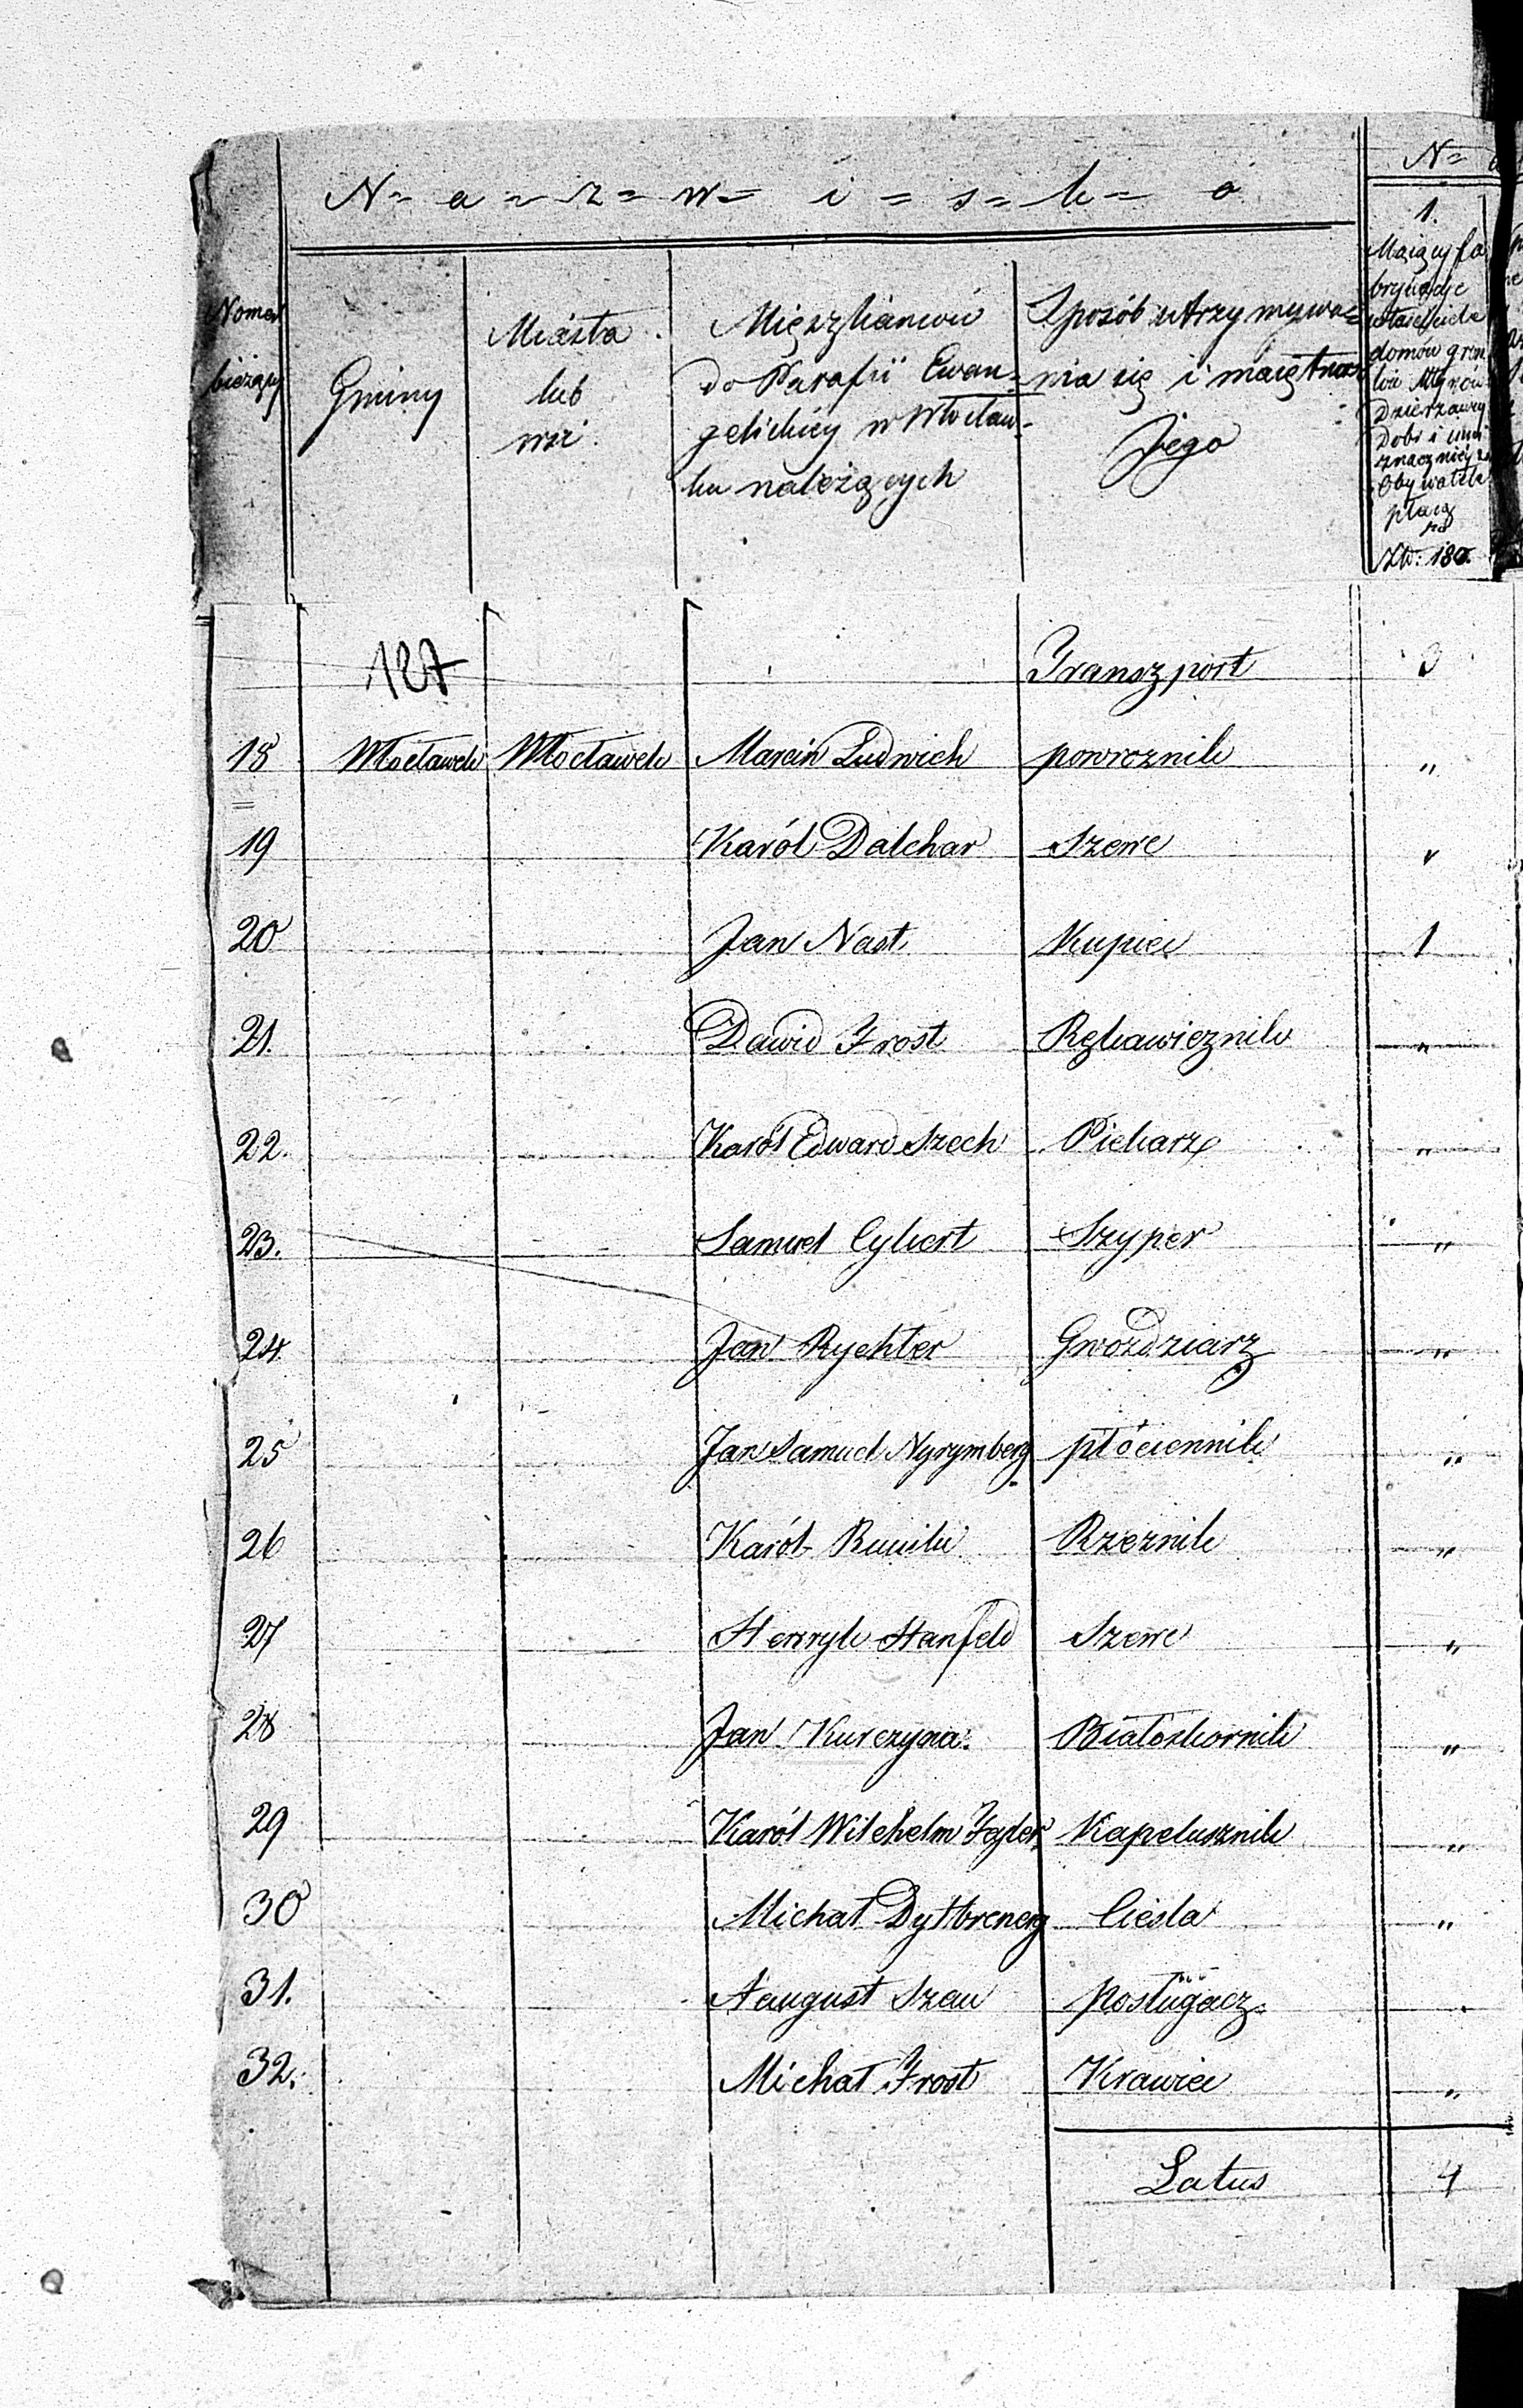 N= a = z = w = i = s = k = o
N=
Nomer bieżący
Gminy
Miasta lub wsi
Mięszkańców do Parafii Ewan=gelickiey w Włocław=ku należących
Sposób utrzymywa=nia się i maiętnośc Jego
1. Maiący fa
domów
Młynów
Dzierzawcy
Dobr i inni
znacznieÿ
Obywatele
płacą
po
Zło: 180.
127
Transzport 3
18 Włocławek Włocławek Marcin Ludwich powroznik "
19 Karól Dalchar Szewc "
20 Jan Nast Kupiec 1
21. Dawid Frost Rękawicznik "
22. Karól Edward Szech Piekarz "
23. Samuel Cykert Szyper "
24 Jan Rychter Gwoździarz "
25 Jan Samuel Nyrymberg płóciennik "
26 Karól Rzeznik "
27 Henryk Hanfeld Szewc "
28 Jan Kurczyna. Białoskornik "
29 Karól Wilehelm Kapelusznik "
30 Michał Dytbrenerg Cieśla "
31. August Szau posługacz "
32. Michał Frost Krawiec "
Latus 4